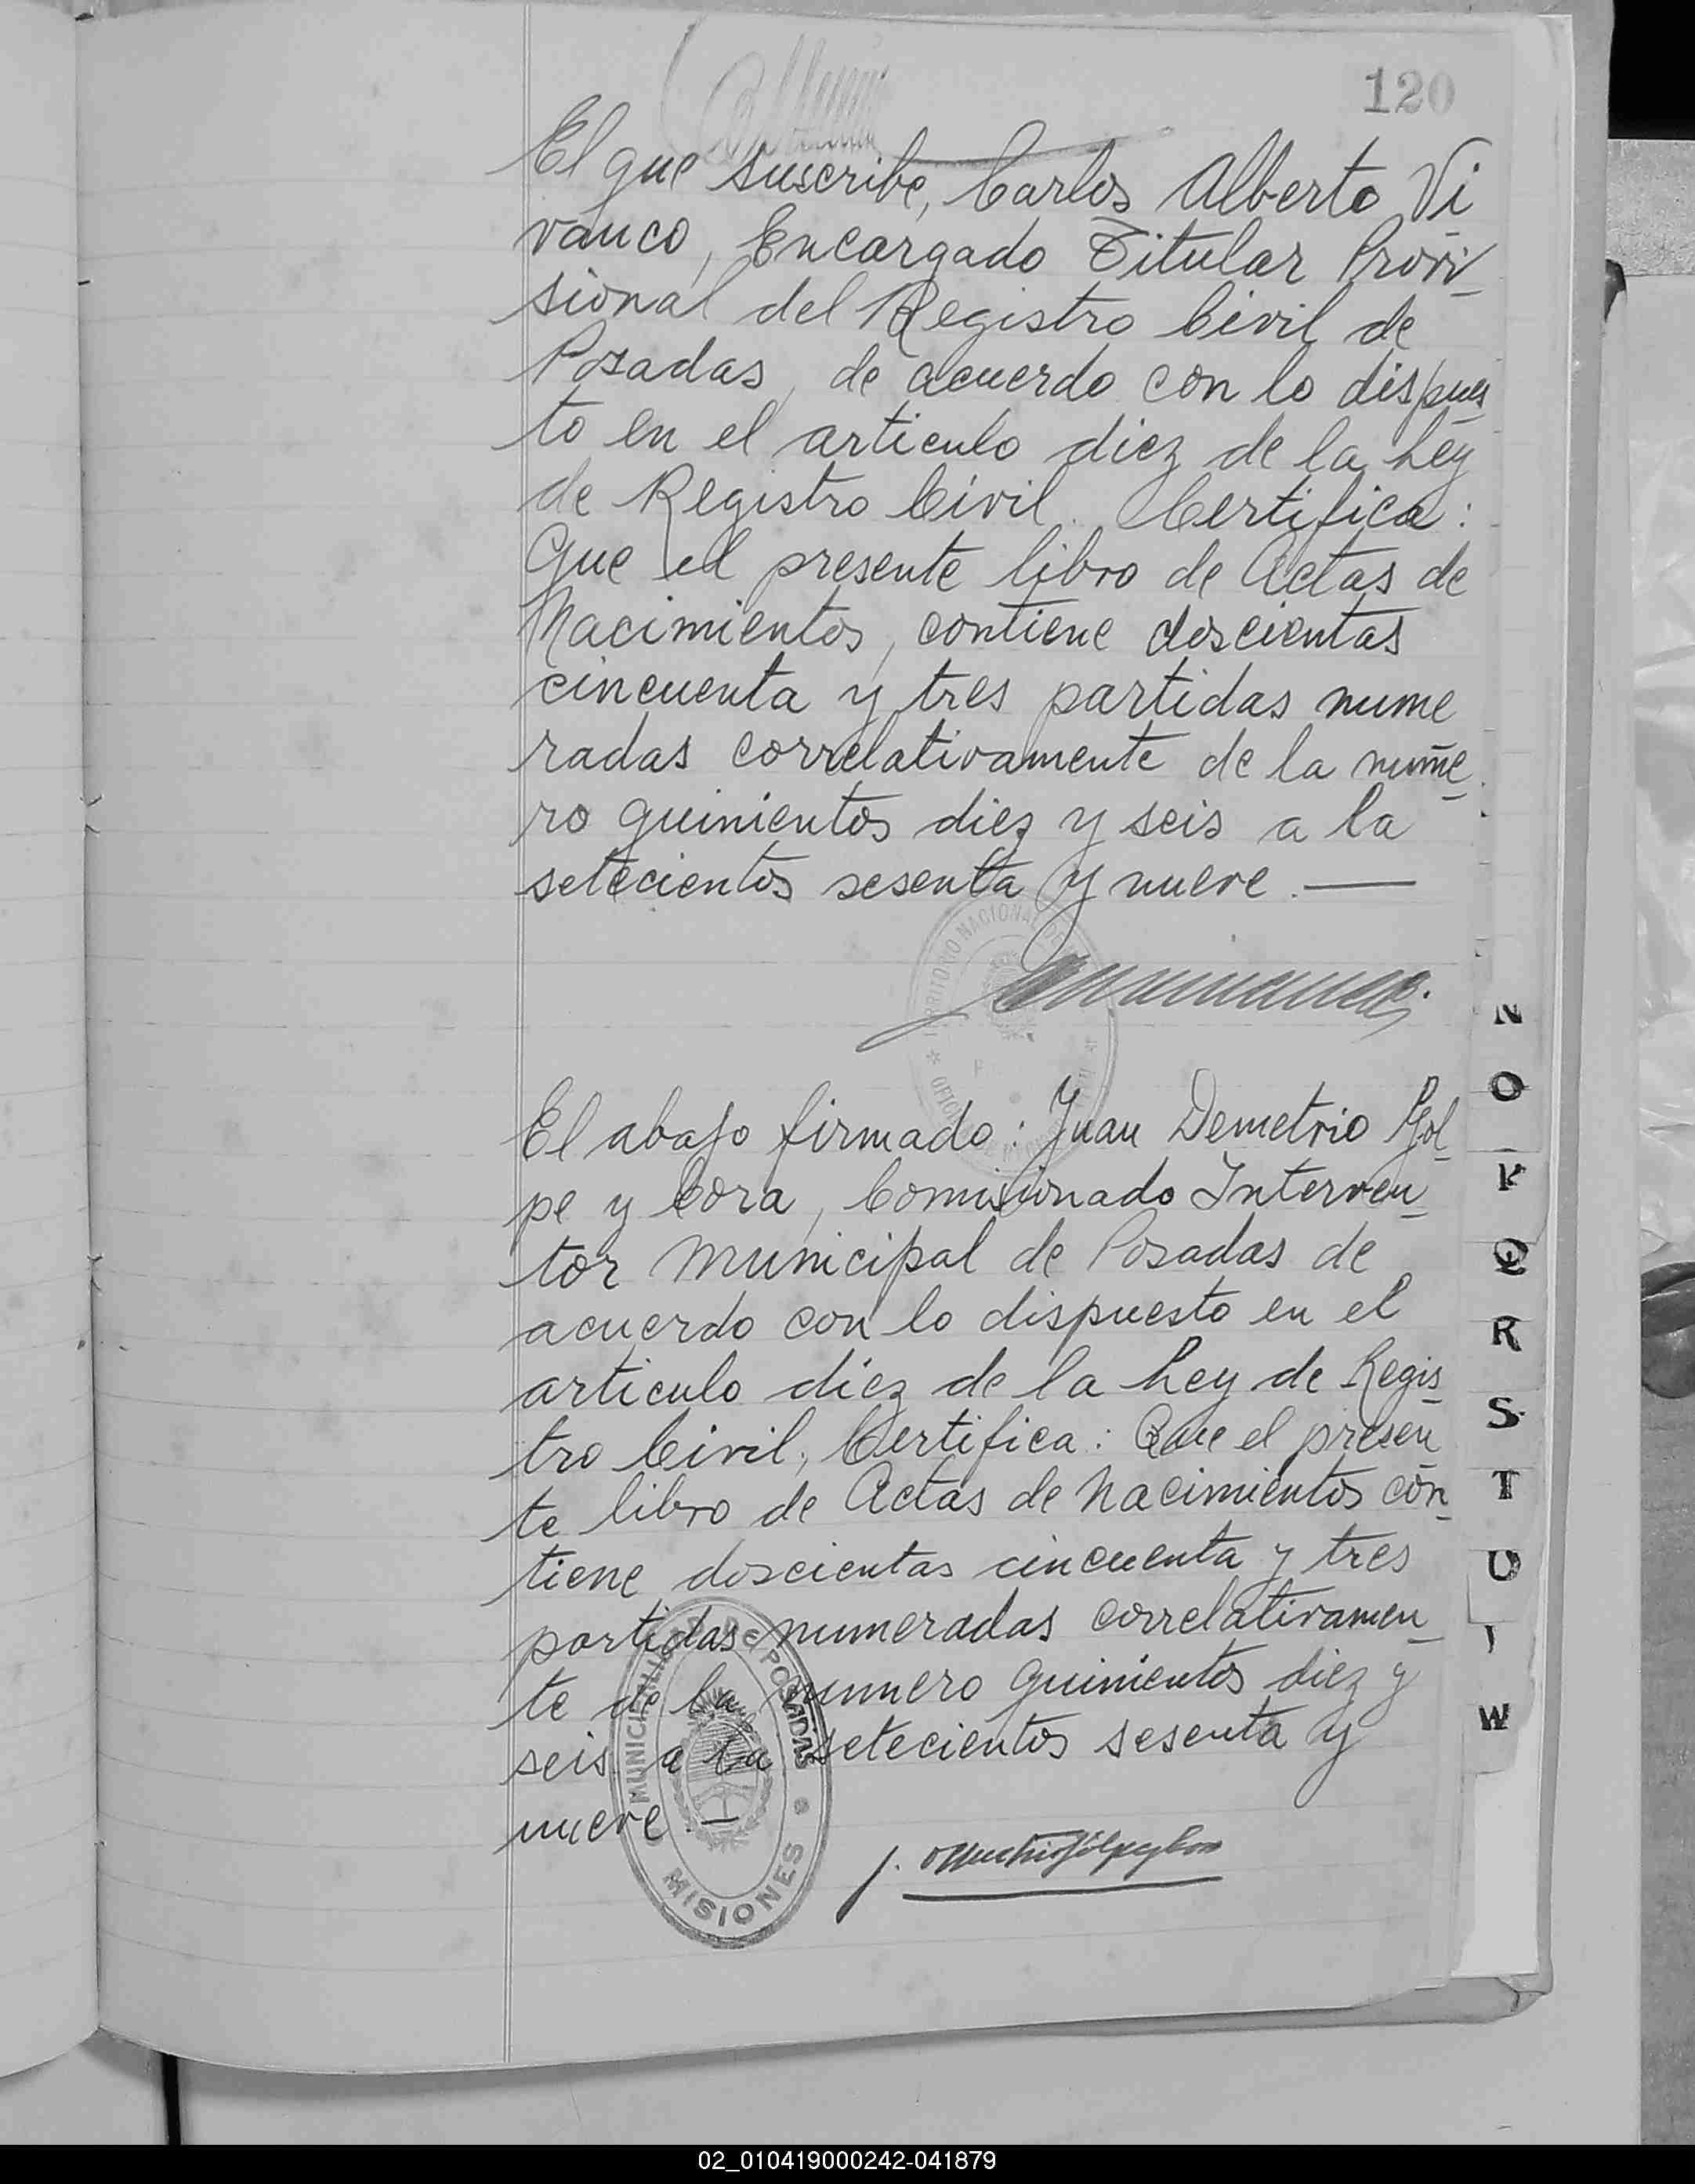 120
El que suscribe, Carlos Alberto Vi
vanco, Encargado Titular Provi-
sional del Registro Civil de
Posadas, de acuerdo con lo dispues
to en el articulo diez de la Ley
de Registro Civil. Certifica:
Que el presente libro de Actas de
Nacimientos, contiene doscientas
cincuenta y tres partidas nume
radas correlativamente de la nume
ro quinientos diez y seis a la
setecientos sesenta y nueve. —
TERRITORIO NACIONAL DE
El abajo firmado: Juan Demetrio Gol
pe y Cora, Comisionado Interven
tor Municipal de Posadas de
acuerdo con lo dispuesto en el
articulo diez de la Ley de Regis
tro Civil, Certifica: Que el presen
te libro de Actas de Nacimientos con
tiene doscientas cincuenta y tres
partidas numeradas correlativamen
te de la numero quinientos diez y
seis a la setecientos sesenta y
nueve. —
MUNICIPALIDAD DE POSADAS
MISIONES
N
O
P
Q
R
S
T
U
W
02_010419000242-041879